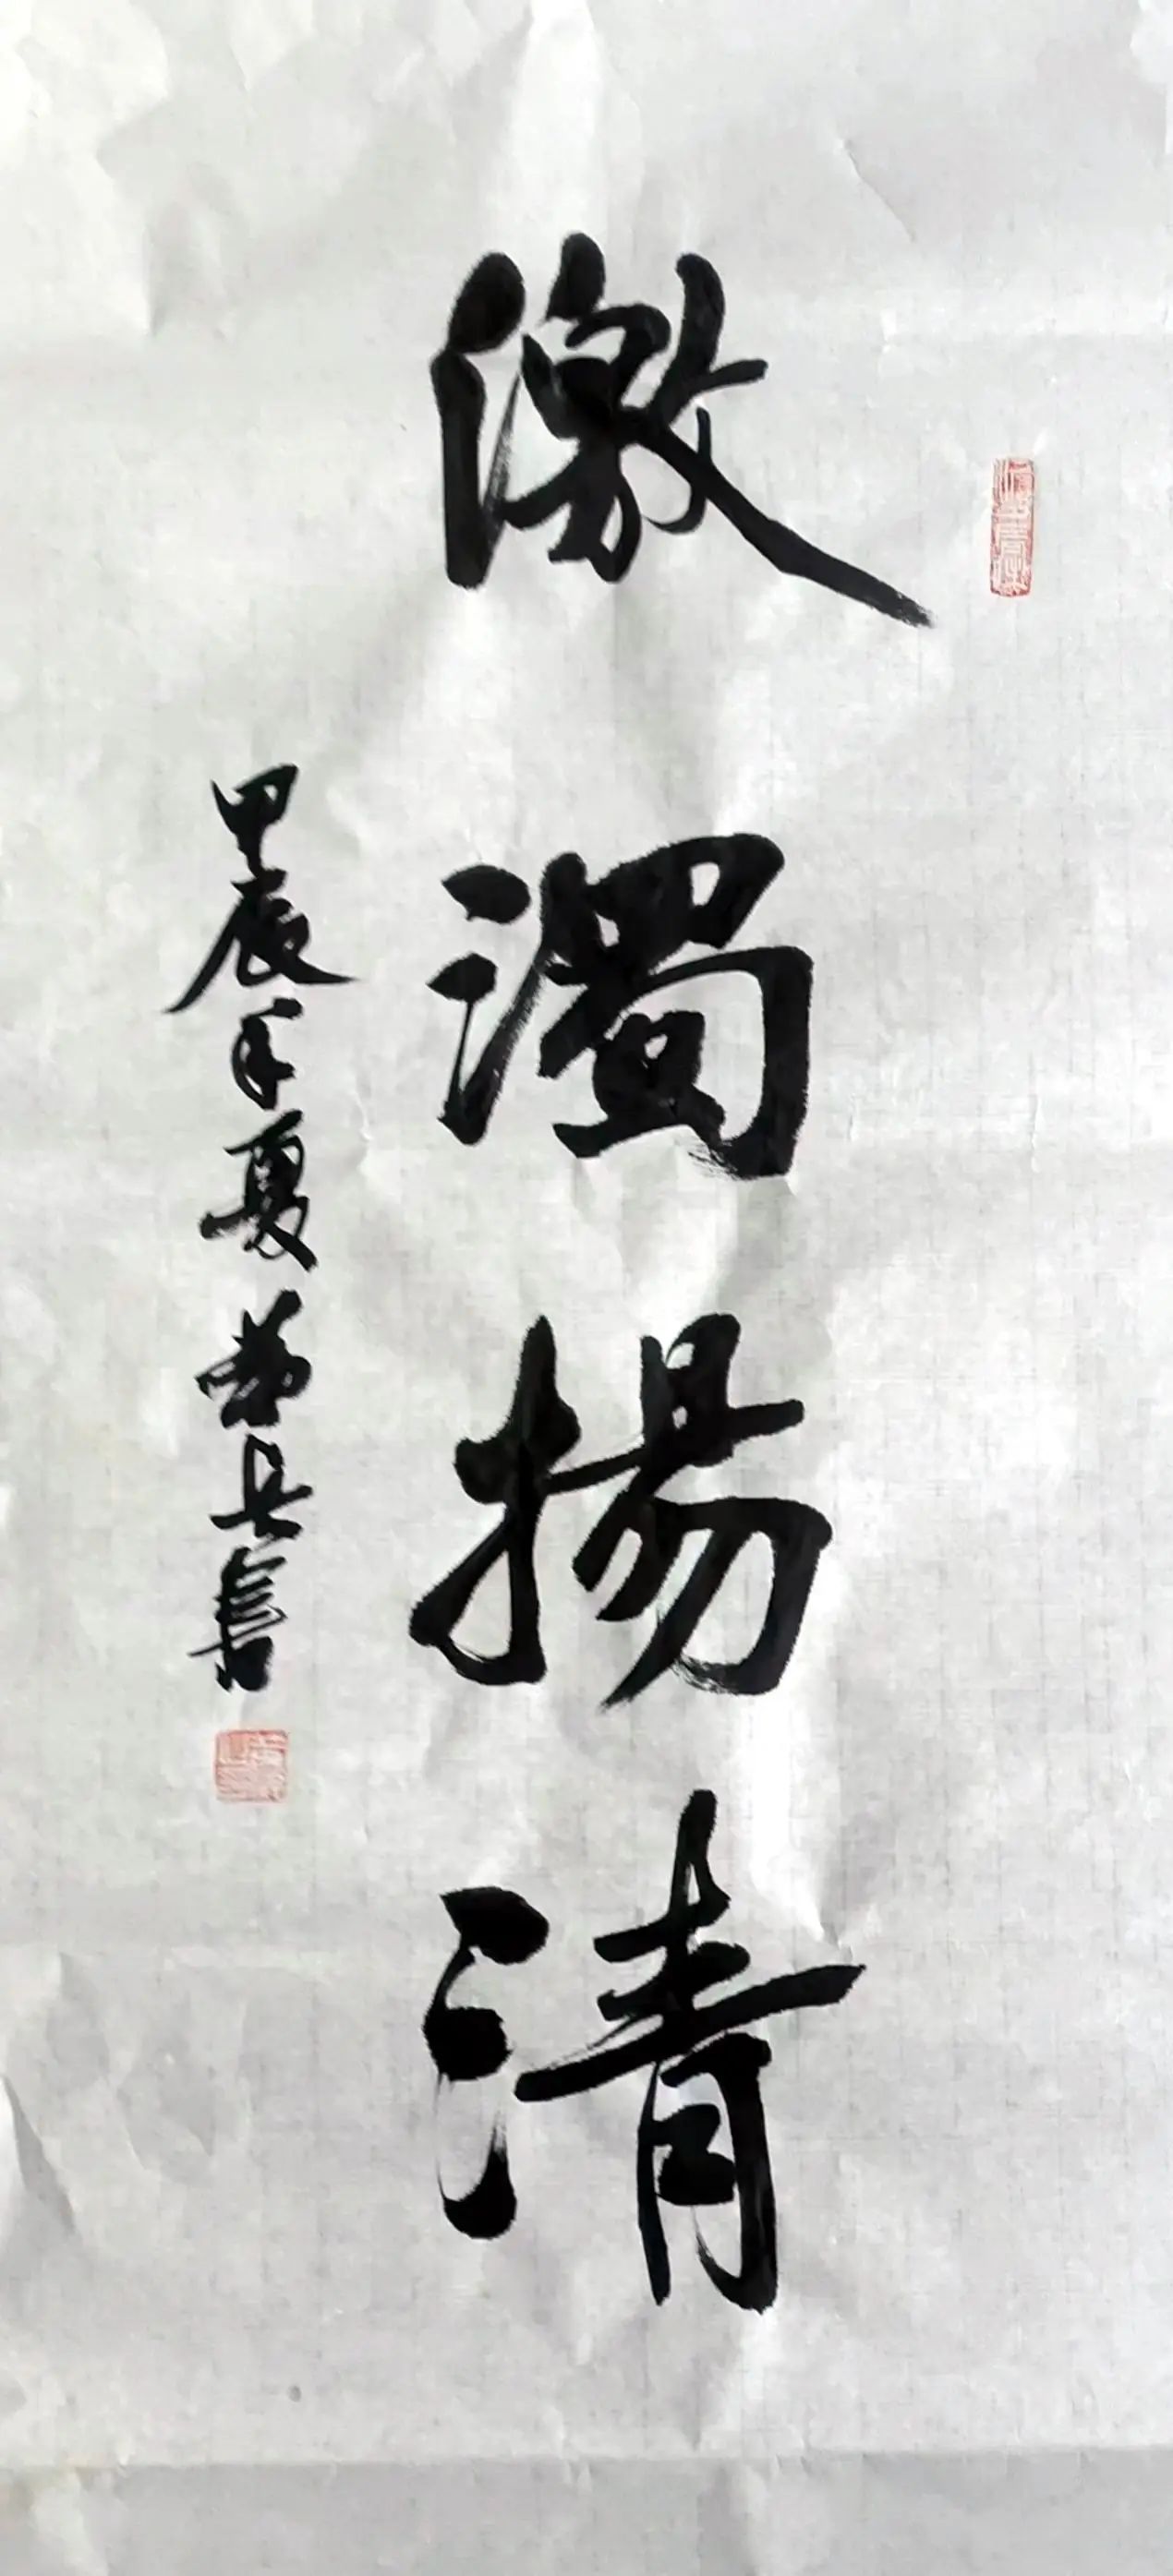 激濁揚清
甲辰年夏